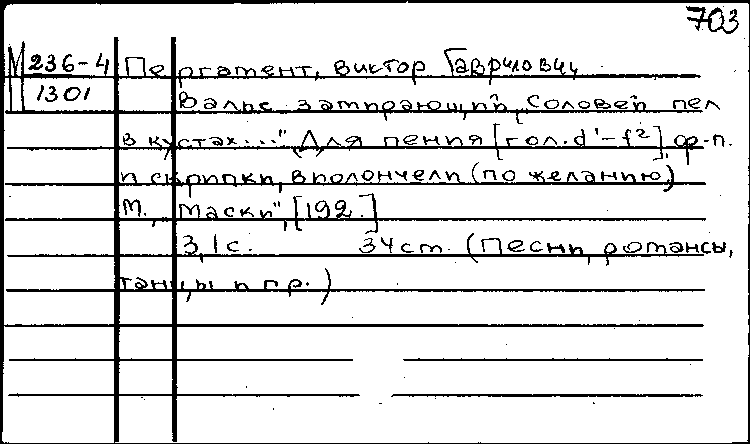 703
М 236-4 Пергамент, Виктор Гаврилович
1301 Вальс замирающий „Соловей пел
в кустах...". Для пения [гол. d¹-f²], ф-п.
и скрипки, виолончели (по желанию)
М., „Маски", [192 ]
3,1с. 34 см. (Песни, романсы,
танцы и пр.)